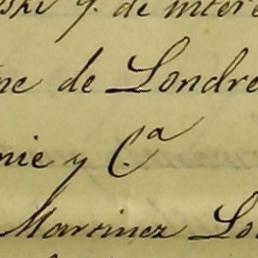 g. de intere
ne de Londre
nie y C.ª
Martinez Lo